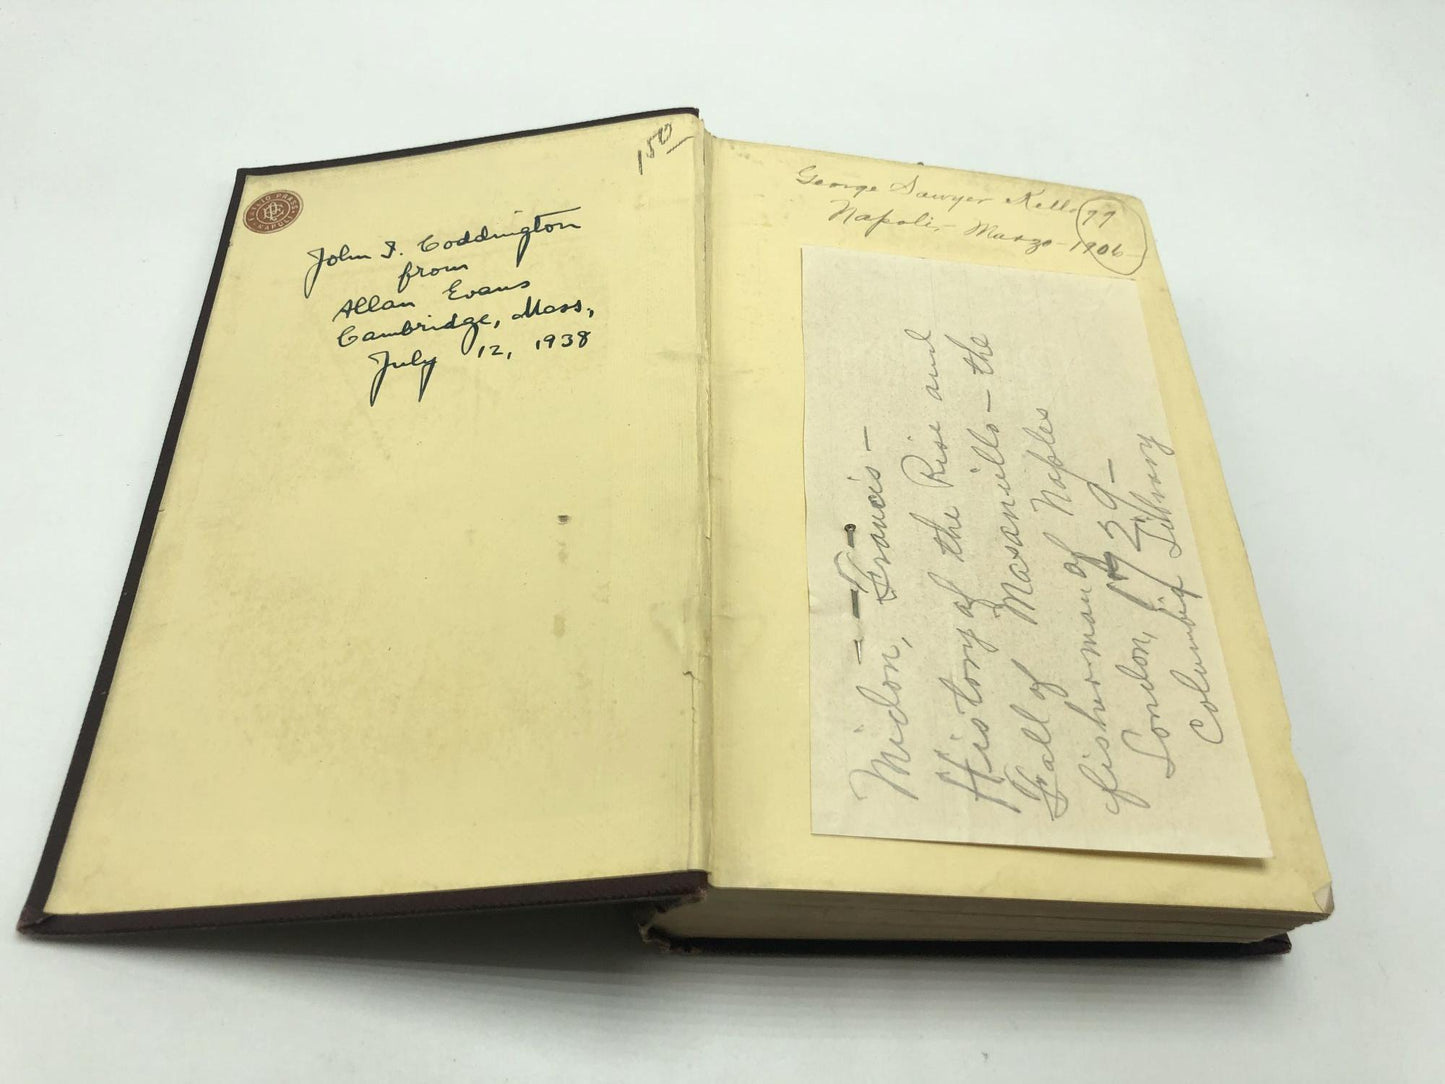 1 50
John I. Coddington
from
Allan Evans
Cambridge, Mass,
July 12, 1938
George Sawyer Kellogg
Napoli, - Marzo - 1906 -
Midon, - Francis -
History of the Rise and
Fall of Masaniello - the
fisherman of Naples
London, 1729 -
Columbia Library